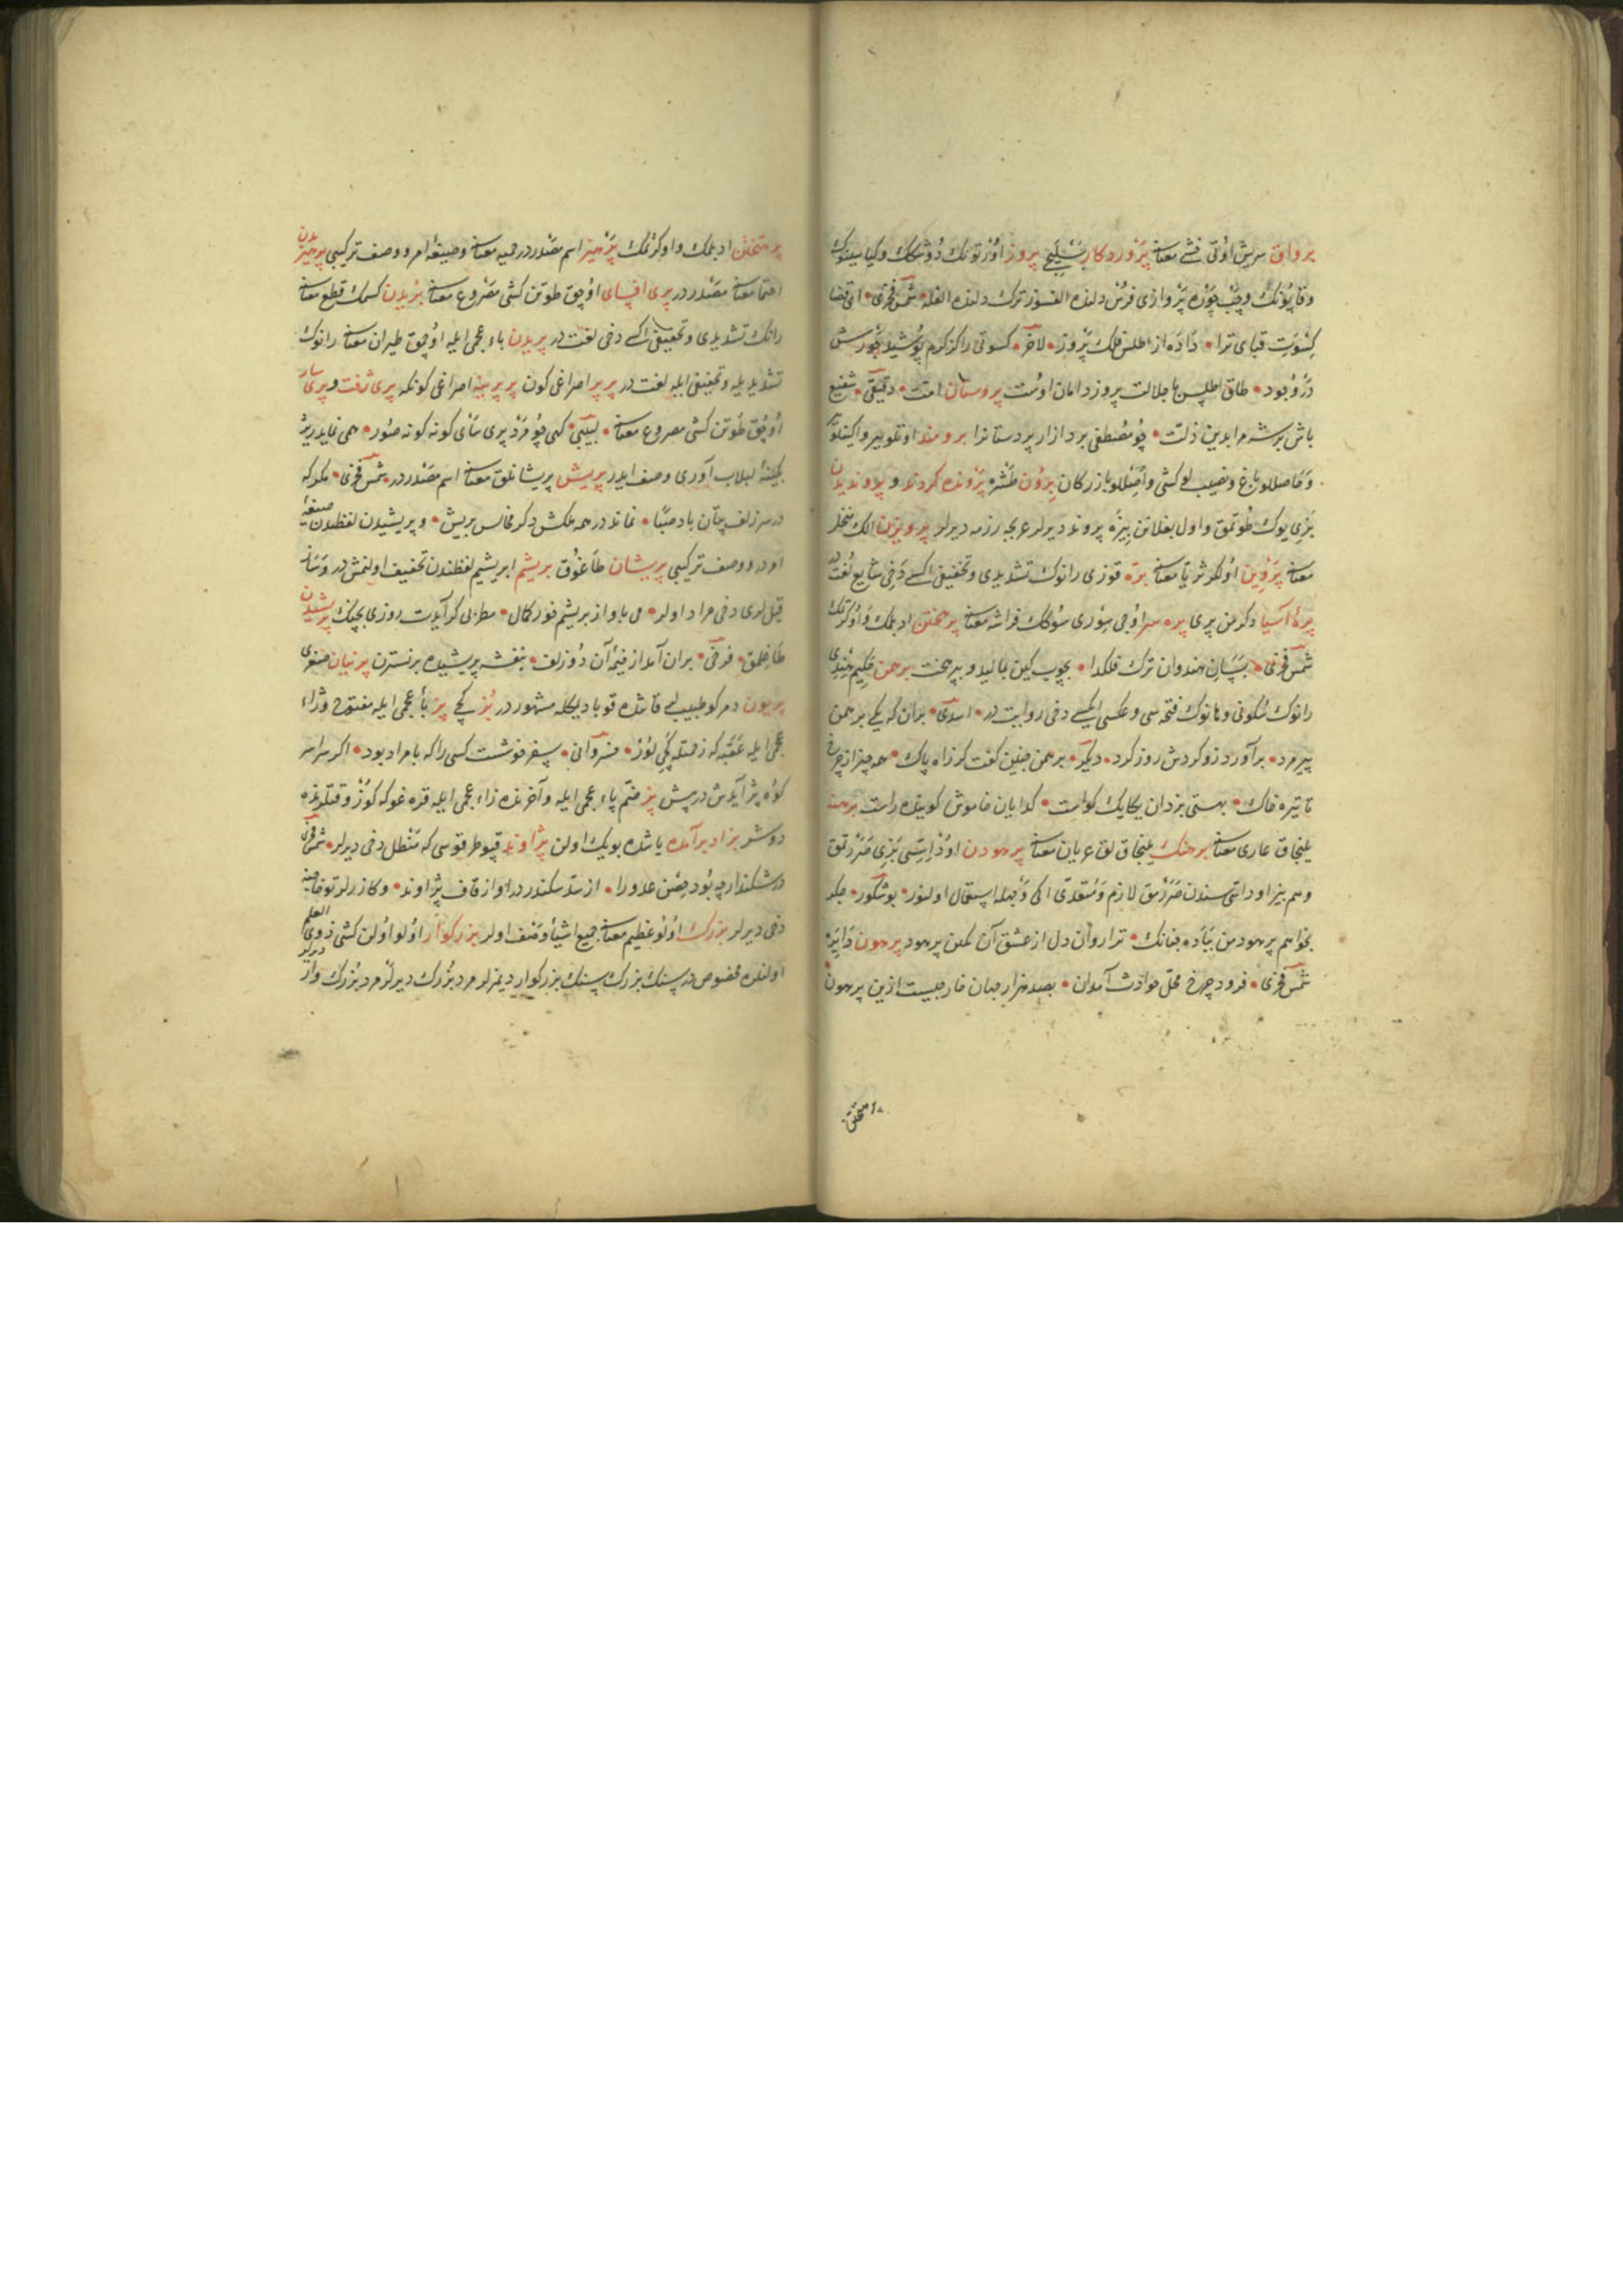 برواق سریش اوتی خنثی معناسنه پروردکار بسلیجی پروز اوزتونك دوشكك وكیاسینوك
وقاپونك وچپ چوره پروازی فرس دلنده الفسوز ترك دلنده الفله شمس فخری ای قضا
کسوت قبای ترا داده از اطلس فلك پروز لاخر کسوتی راکز کرم پوشید
در وجود طاق اطلس با جلالت پروز دامان اوست پروستان امت دقیقی شفیع
باش بر شه مرا بدین ذلت چو مصطفی بر دادار پروستانرا برومند
وحاصللو باغ ونصیبلو کشی واصللو بازرکان برون طشره پرونده کردند و پلاوند
بزی یوك طوتمق واول بغلانن بیزه پروند دیرلر عربجه رزمه دیرلر پرویزن الك منخل
معناسنه پروین اولکر ثریا معناسنه بره قوزی رانوك تشدیدی وتخفیفی اکیسی دخی شایع لغت در
پرۀ آسیا دکرمن پری پره سر اوجی سوری سوكك فراشه معناسنه پرهختن ادبلمك واوکرتمك
شمس فخری بسان هندوان ترك فلكدا بچوب کین بمالید و بپرهخت برهمن حکیم هندی
رانوك سکونی وهانوك فتحه سی وعکسی ایکیسی دخی روایت در اسدی بران که یکی برهمن
پیر مرد برآورد زو کردش روز کرد دیکر برهمن چنین کفت کز راه پاك همه چیز از چرخ
تا تیره خاك بهستی یزدان یکایك کواست کدایان خاموش کوینده راست برهنه
یلنجاق عاری معناسنه برهنك یلنجاق لق عریان معناسنه پرهودن اود استسی بزی صررتمق
وهم بیز اود استسندن صررمق لازم ومتعدی ایکی وجهله استعمال اولنور بوشکور جکر
بخواهم پرهود من بباده چنانك ترا روان دل از عشق آن کمن پرهود پرهون دایره
شمس فخری فرود چرخ محل حوادث آمدان بصد هزار جهان خارجیست ازین پرهون
پرهیختن ادبلمك واوکرتمك پرهیز اسم مصدردر حمیه معناسنه وصیغۀ امر ووصف ترکیبی پرهیزیدن
احتما معناسنه مصدردر پری افسای اوچق طوتن کشی مصروع معناسنه بریدن کسمك قطع معناسنه
رانك تشدیدی وتخفیفی اکیسی دخی لغت در پریدن باء عجمی ایله اوچمق طیران معناسنه رانوك
تشدیدیله وتخفیفی ایله لغت در پریر اصراغی کون پریرینه اصراغی کونکه پری زفت و پری سار
اوچق طوتن کشی مصروع معناسنه لبیبی کهی چو مرد پری سای کونه کونه صور همی نماید زیر
نکینۀ لبلاب آوری وصف ایدر پریش پریشانلق معناسنه اسم مصدردر شمس فخری مکر که
در سر زلف بتان باد صبا نماند در همه ملکش دکر مخالس بریش وپریشیدن لفظندن صیغۀ
امردر ووصف ترکیبی پریشان طاغوق بریشم ابریشم لفظندن تخفیف اولنمش در وساز
قیللری دخی مراد اولر می باواز بریشم خور کمال مطربی کر آیدت روزی بچنك پریشیدن
طاغلمق فرخی بران آمد از خیمه آن دو زلف بنفشه پریشیده بر نسترن پرنیان
پریون دمرکو طبیبلر قاتنده قوبا دیکله مشهوردر بز کچی پژ باء عجمی ایله مفتوح وزاء
عجمی ایله عقبه که زحمتله کچیلور خسروانی سفر خوشست کسی را که با مراد بود اکر سراسر
کوه پژ آیدش در پیش پژ ضم پاء عجمی ایله وآخرنده زاء عجمی ایله قره غو که کوز وقتلرنده
دوشر بزادبرآمده یاشده بویك اولن پژاوند قپو طرقوسی که متطل دخی دیرلر شمس فخری
درشکند ارچه بود حصن عدو را از سد سکندر در او از قاف پژاوند وکازرلر توخاجنه
دخی دیرلر بزرك اولو عظیم معناسنه جمیع اشیا وصف اولر بزرکوار اولو اولن کشی ذوی العلم
اولنلره مخصوص در سنك بزرك سنك بزرکوار دیمزلر مرد بزرك دیرلر مرد بزرکوار دیرلر